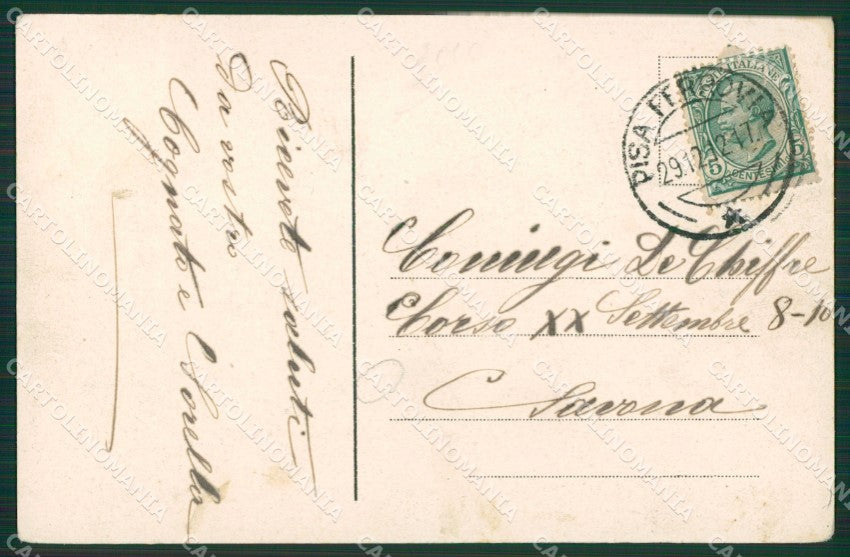 Ricevete saluti
Da vostri
Cognato e Sorella
PISA FERROVIA
29.12.12-17
POSTE ITALIANE
5 CENTESIMI 5
Coniugi De Chiffre
Corso XX Settembre 8-10
Savona
CARTOLINOMANIA